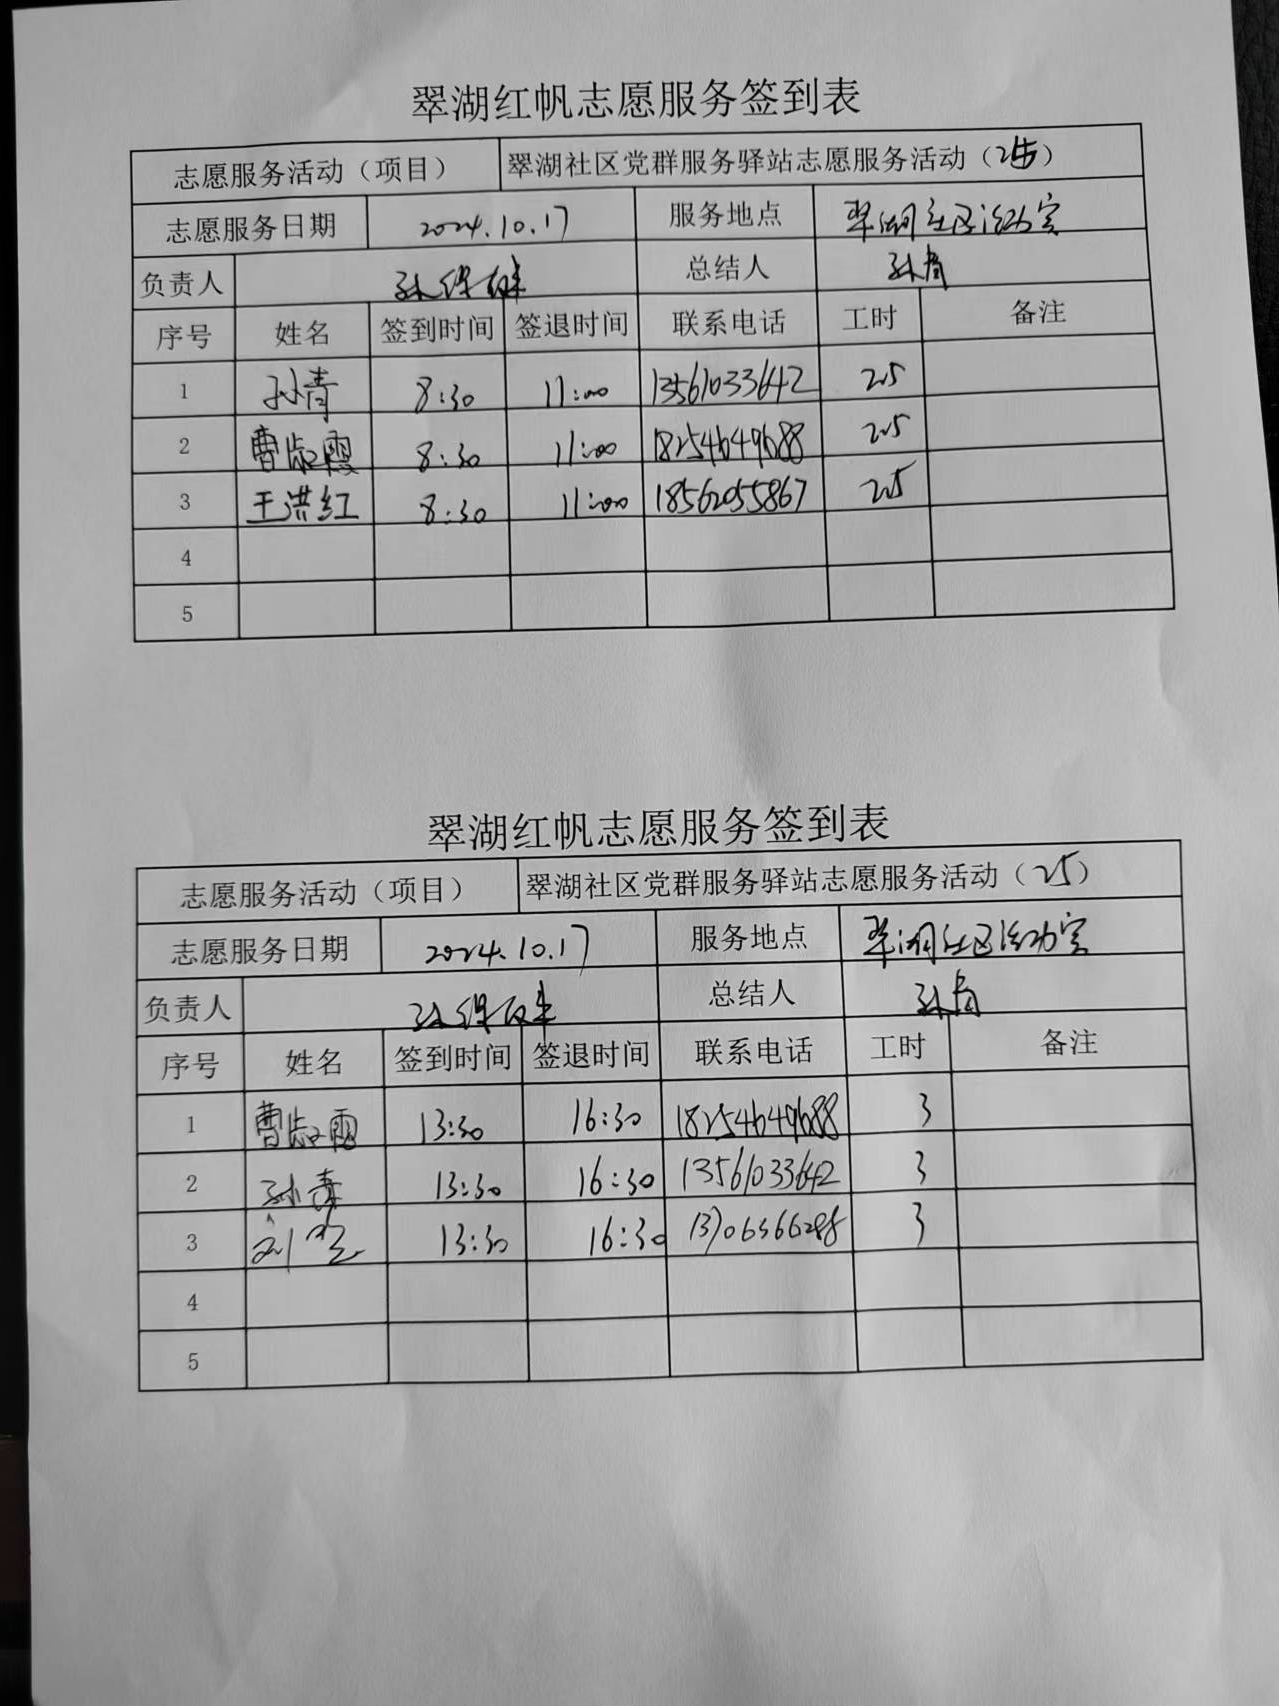 翠湖红帆志愿服务签到表
志愿服务活动（项目） 翠湖社区党群服务驿站志愿服务活动（）
志愿服务日期 2024.10.17 服务地点 翠湖社区活动室
负责人 孙 总结人 孙青
序号 姓名 签到时间 签退时间 联系电话 工时 备注
1 孙青 8:30 11:00 13561033642 2.5
2 曹淑霞 8:30 11:00 18254649688 2.5
3 王洪红 8:30 11:00 18562055867 2.5
4
5
翠湖红帆志愿服务签到表
志愿服务活动（项目） 翠湖社区党群服务驿站志愿服务活动（25）
志愿服务日期 2024.10.17 服务地点 翠湖社区活动室
负责人 孙 总结人 孙青
序号 姓名 签到时间 签退时间 联系电话 工时 备注
1 曹淑霞 13:30 16:30 18254649688 3
2 孙青 13:30 16:30 13561033642 3
3 刘 13:30 16:30 3
4
5